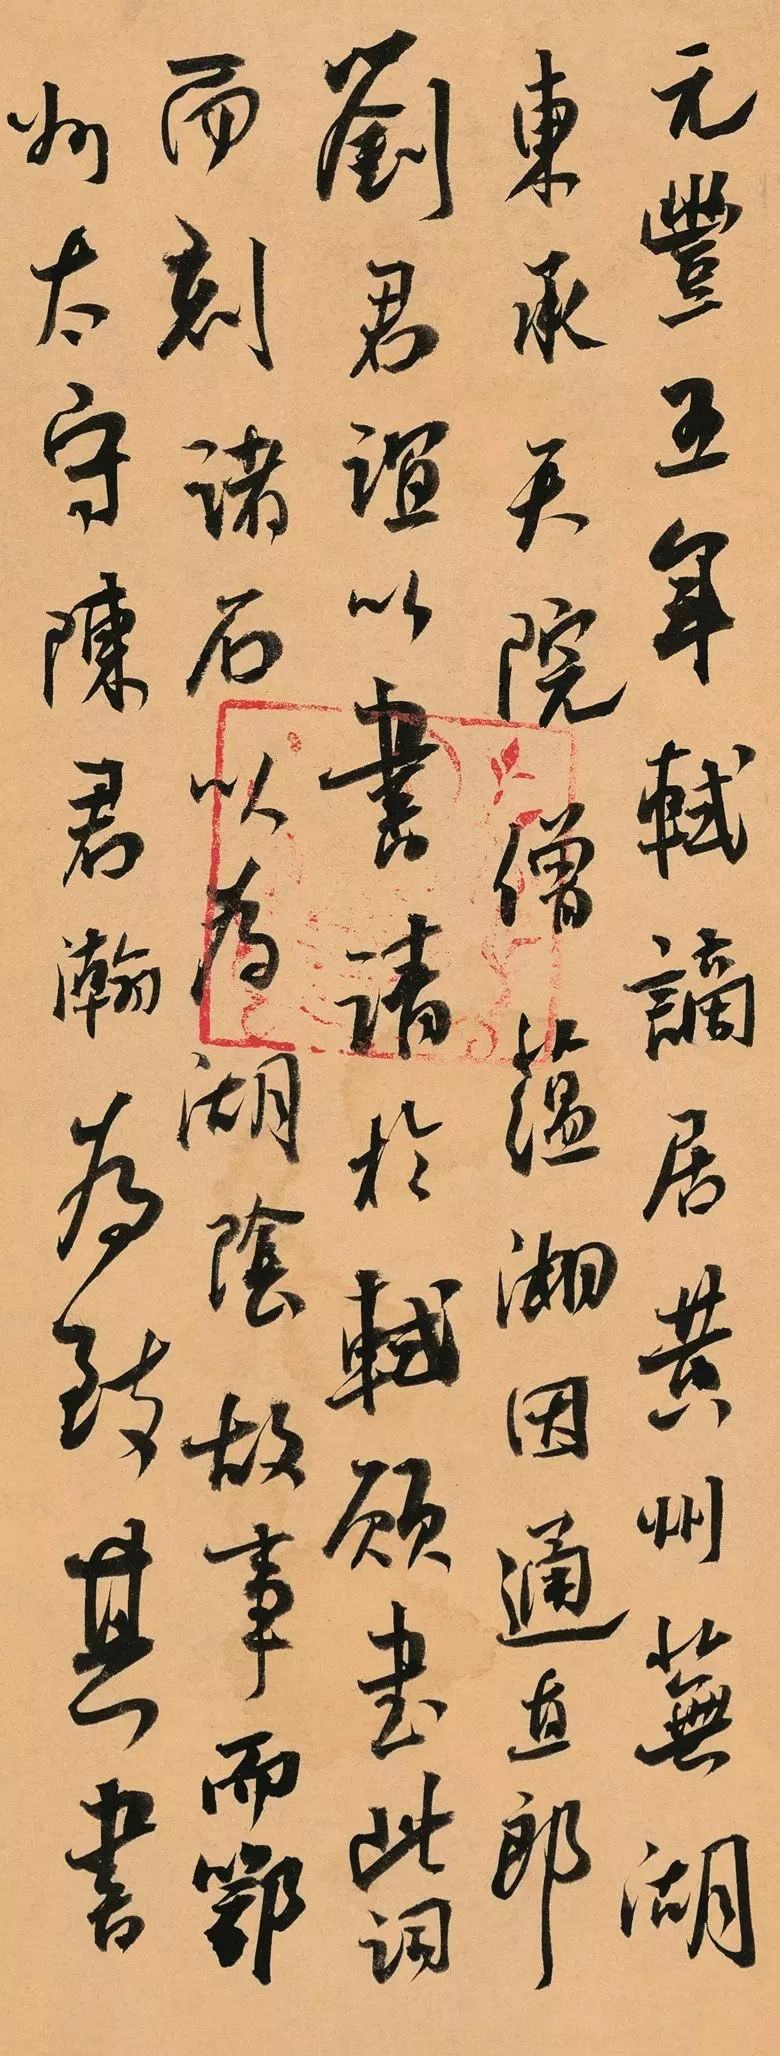 元豐五年軾謫居黃州蕪湖
東承天院僧蘊湘因通直郎
劉君誼以書請於軾願書此詞
而刻諸石以為湖陰故事而鄂
州太守陳君瀚為致其書